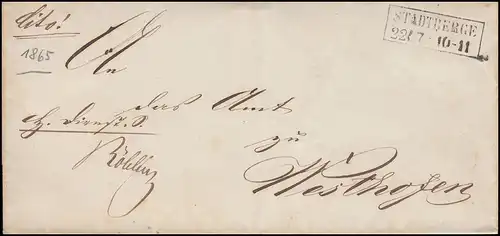 Cito!
STADTBERGE
22/7 10-11
1865
An
das Amt
H. Dienst. S.
zu
Westhofen